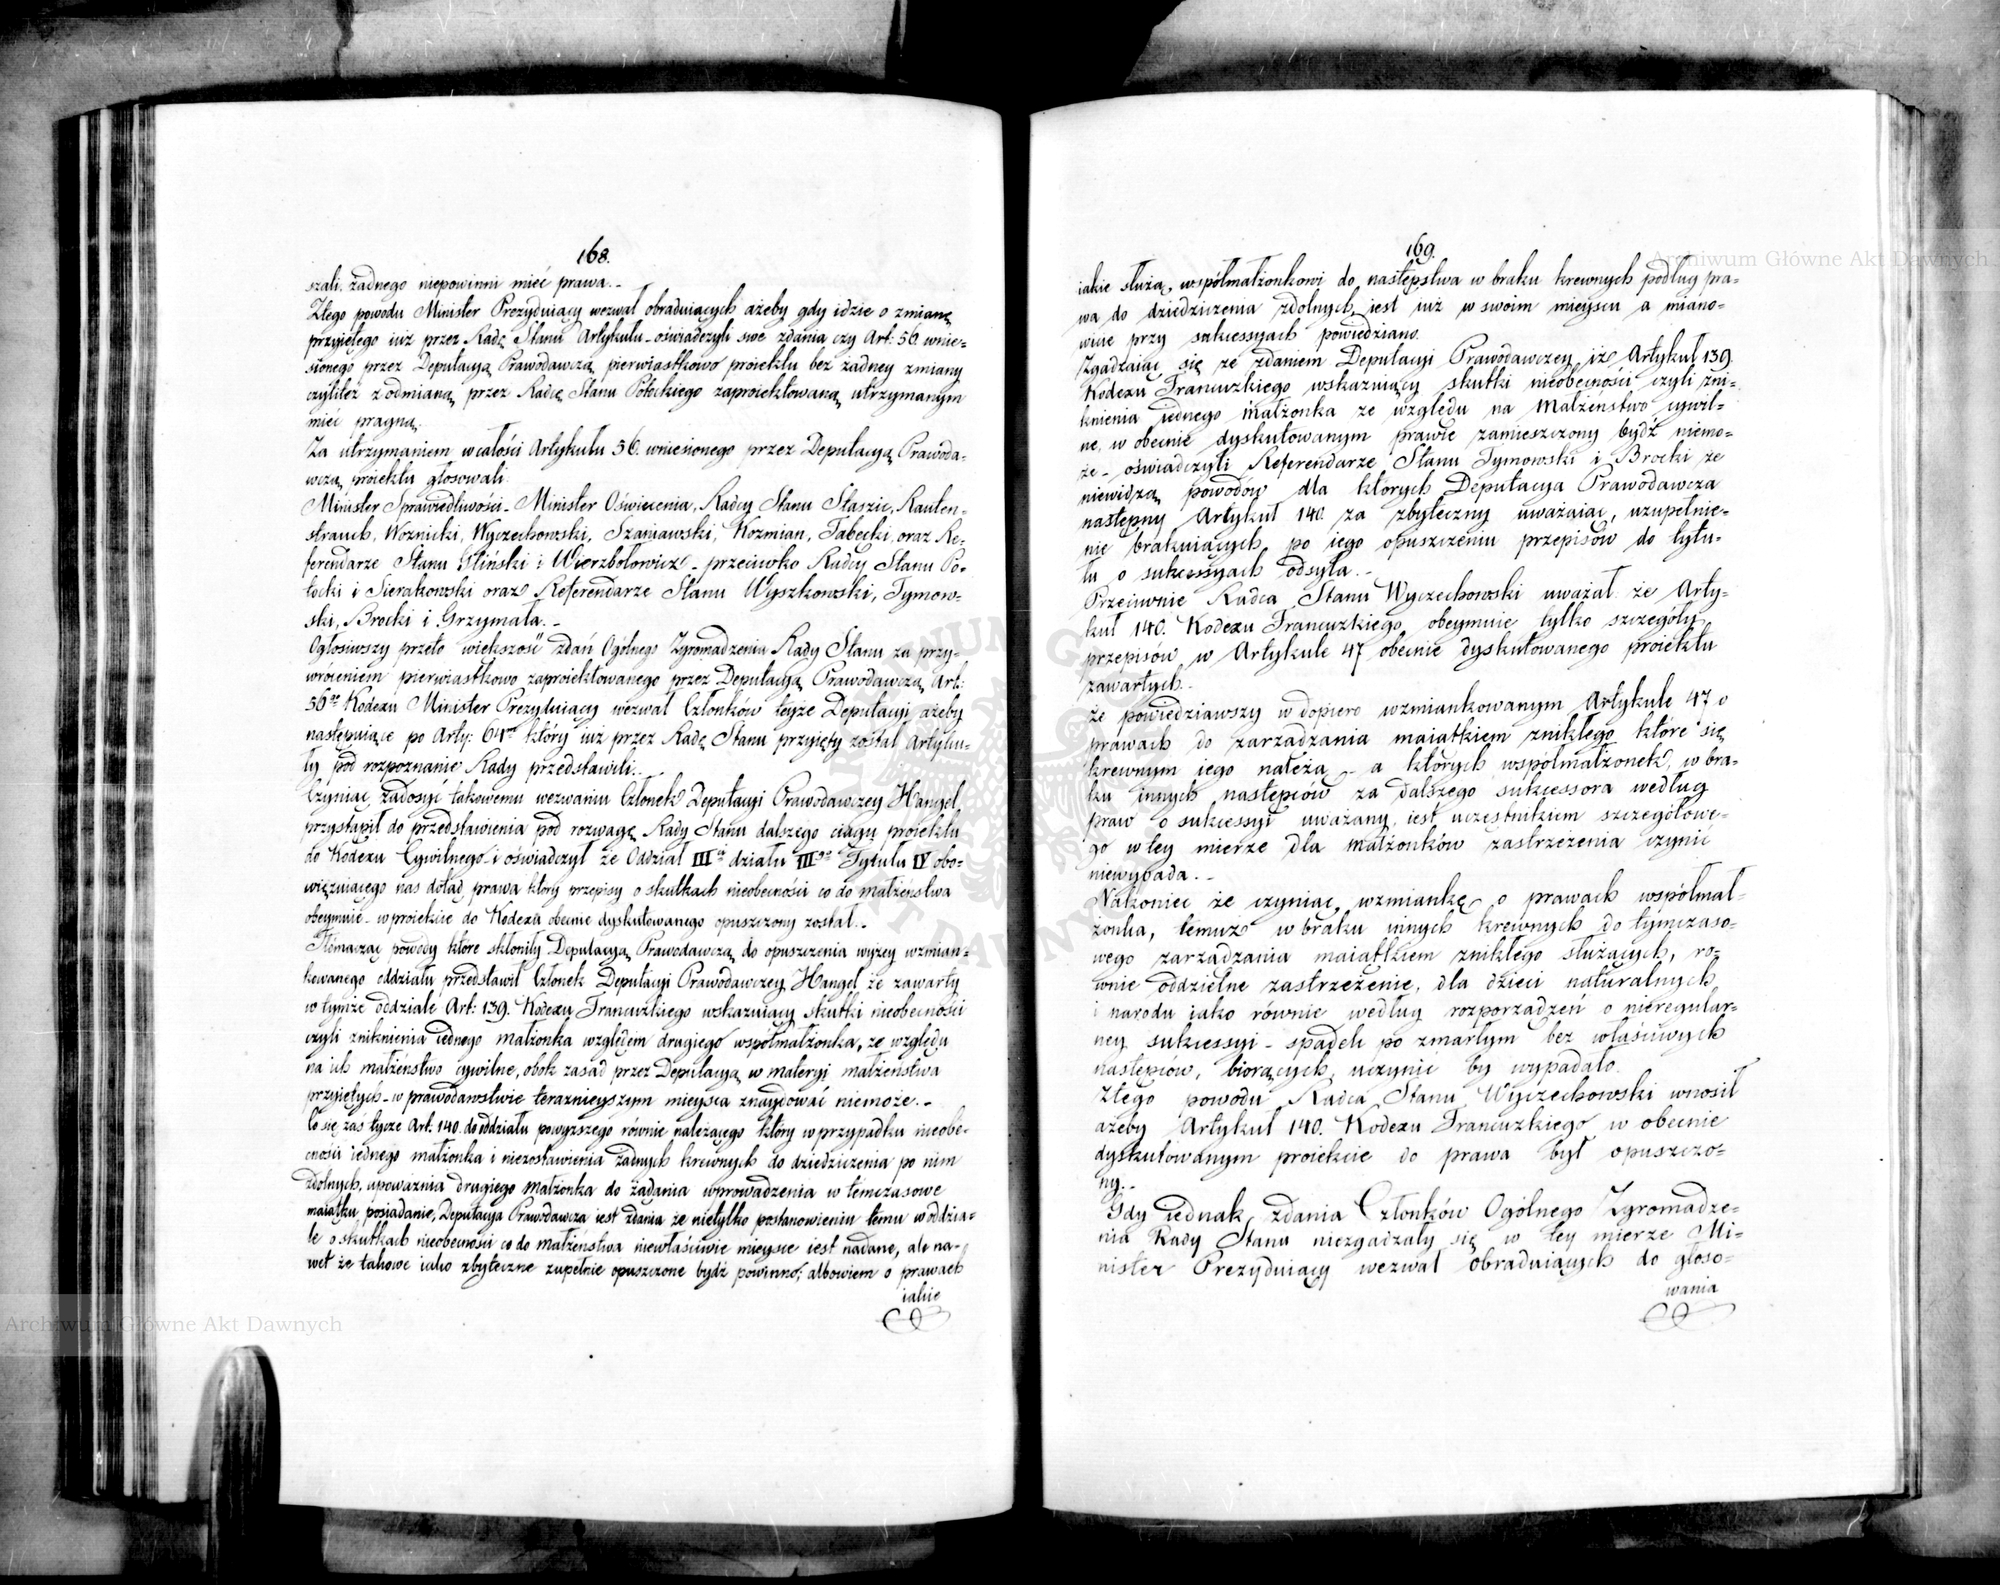 168.
szali. żadnego niepowinni mieć prawa._
Ztego powodu Minister Prezyduiący wezwał obraduiących ażeby gdy idzie o zmianę
przyiętego iuż przez Radę Stanu Artykułu_oświadczyli swe zdania czy Art: 56. wnie=
sionego przez Deputacyą Prawodawczą pierwiastkowo proiektu bez żadney zmiany
czyliteż z odmianą przez Radcę Stanu Potockiego zaproiektowaną utrzymanym
mieć pragną.
Za utrzymaniem w całości Artykułu 56. wniesionego przez Deputacyą Prawoda=
wczą proiektu głosowali.
Minister Sprawiedliwości_Minister Oświecenia, Radcy Stanu Staszic, Rauten=
strauch, Woznicki, Wyczechowski, Szaniawski, Kozmian, Tabecki, oraz Re=
ferendarze Stanu Gliński i Wierzbołowicz_przeciwko Radcy Stanu Po=
tocki i Sierakowski oraz Referendarze Stanu Wyszkowski, Tymow=
ski, Brocki i Grzymała._
Ogłosiwszy przeto większość zdań Ogólnego Zgromadzenia Rady Stanu za przy=
wróceniem pierwiastkowo zaproiektowanego przez Deputacyą Prawodawczą Art:
56go Kodexu Minister Prezyduiący wezwał Członków teyże Deputacyi ażeby
następuiące po Arty: 64m który iuż przez Radę Stanu przyięty został Artyku=
ły pod rozpoznanie Rady przedstawili._
Czyniąc zadosyć takowemu wezwaniu Członek Deputacyi Prawodawczey Hangel,
przystąpił do przedstawienia pod rozwagę Rady Stanu dalszego ciągu proiektu
do Kodexu Cywilnego i oświadczył że Oddział IIIci działu IIIgo Tytułu IV obo=
więzuiącego nas dotąd prawa który przepisy o skutkach nieobecności co do małżeństwa
obeymuie_w proiekcie do Kodexu obecnie dyskutowanego opuszczony został._
Tłómacząc powody które skłoniły Deputacyą Prawodawczą do opuszczenia wyżey wzmian=
kowanego oddziału przedstawił Członek Deputacyi Prawodawczey Hangel że zawarty
w tymże oddziale Art: 139. Kodexu Francuzkiego wskazuiący skutki nieobecności
czyli zniknienia iednego małżonka względem drugiego współmałżonka, ze względu
na ich małżeństwo cywilne, obok zasad przez Deputacyą w materyi małżeństwa
przyiętych_w prawodawstwie teraznieyszym mieysca znaydować niemoże._
Co się zaś tycze Art: 140. do oddziału powyższego równie należącego który w przypadku nieobe=
cności iednego małżonka i niezostawienia żadnych krewnych do dziedziczenia po nim
zdolnych, upoważnia drugiego małżonka do żądania wprowadzenia w temczasowe
maiątku posiadanie, Deputacya Prawodawcza iest zdania że nietylko postanowieniu temu w oddzia=
le o skutkach nieobecności co do małżeństwa niewłaściwie mieysce iest nadane, ale na=
wet że takowe iako zbyteczne zupełnie opuszczone bydź powinno, albowiem o prawach
iakie
169.
iakie służą, współmałżonkowi do następstwa w braku krewnych podług pra=
wa do dziedziczenia zdolnych, iest iuż w swoim mieyscu a miano=
wicie przy sukcessyach powiedziano.
Zgadzaiąc się ze zdaniem Deputacyi Prawodawczey iż Artykuł 139.
Kodexu Francuzkiego wskazuiący skutki nieobecności czyli zni=
knienia iednego małżonka ze względu na Małżeństwo cywil=
ne, w obecnie dyskutowanym prawie zamieszczony bydź niemo=
że_oświadczyli Referendarze Stanu Tymowski i Brocki że
niewidzą powodów dla których Deputacya Prawodawcza
następny Artykuł 140. za zbyteczny uważaiąc, uzupełnie=
nie brakuiących po iego opuszczeniu przepisów do tytu=
łu o sukcessyach odsyła._
Przeciwnie Radca Stanu Wyczechowski uważał że Arty=
kuł 140. Kodexu Francuzkiego obeymuie tylko szczegóły
przepisów w Artykule 47 obecnie dyskutowanego proiektu
zawartych._
że powiedziawszy w dopiero wzmiankowanym Artykule 47 o
prawach do zarządzania maiątkiem znikłego które się
krewnym iego należą_a których współmałżonek, w bra=
ku innych następców za dalszego sukcessora według
praw o sukcessyi uważany, iest uczęstnikiem szczegółowe=
go w tey mierze dla małżonków zastrzeżenia czynić
niewypada._
Nakoniec że czyniąc wzmiankę o prawach współmał=
żonka, temuż w braku innych krewnych do tymczaso=
wego zarządzania maiątkiem znikłego służących, ró=
wnie oddzielne zastrzeżenie, dla dzieci naturalnych
i narodu iako równie według rozporządzeń o nieregular=
ney sukcessyi_spadek po zmarłym bez właściwych
następców, biorących, uczynić by wypadało.
Ztego powodu Radca Stanu Wyczechowski wnosił
ażeby Artykuł 140. Kodexu Francuzkiego w obecnie
dyskutowanym proiekcie do prawa był opuszczo=
ny._
Gdy iednak, zdania Członków Ogólnego Zgromadze=
nia Rady Stanu niezgadzały się w tey mierze Mi=
nister Prezyduiący wezwał obraduiących do głoso=
wania
Archiwum Główne Akt Dawnych
Archiwum Główne Akt Dawnych